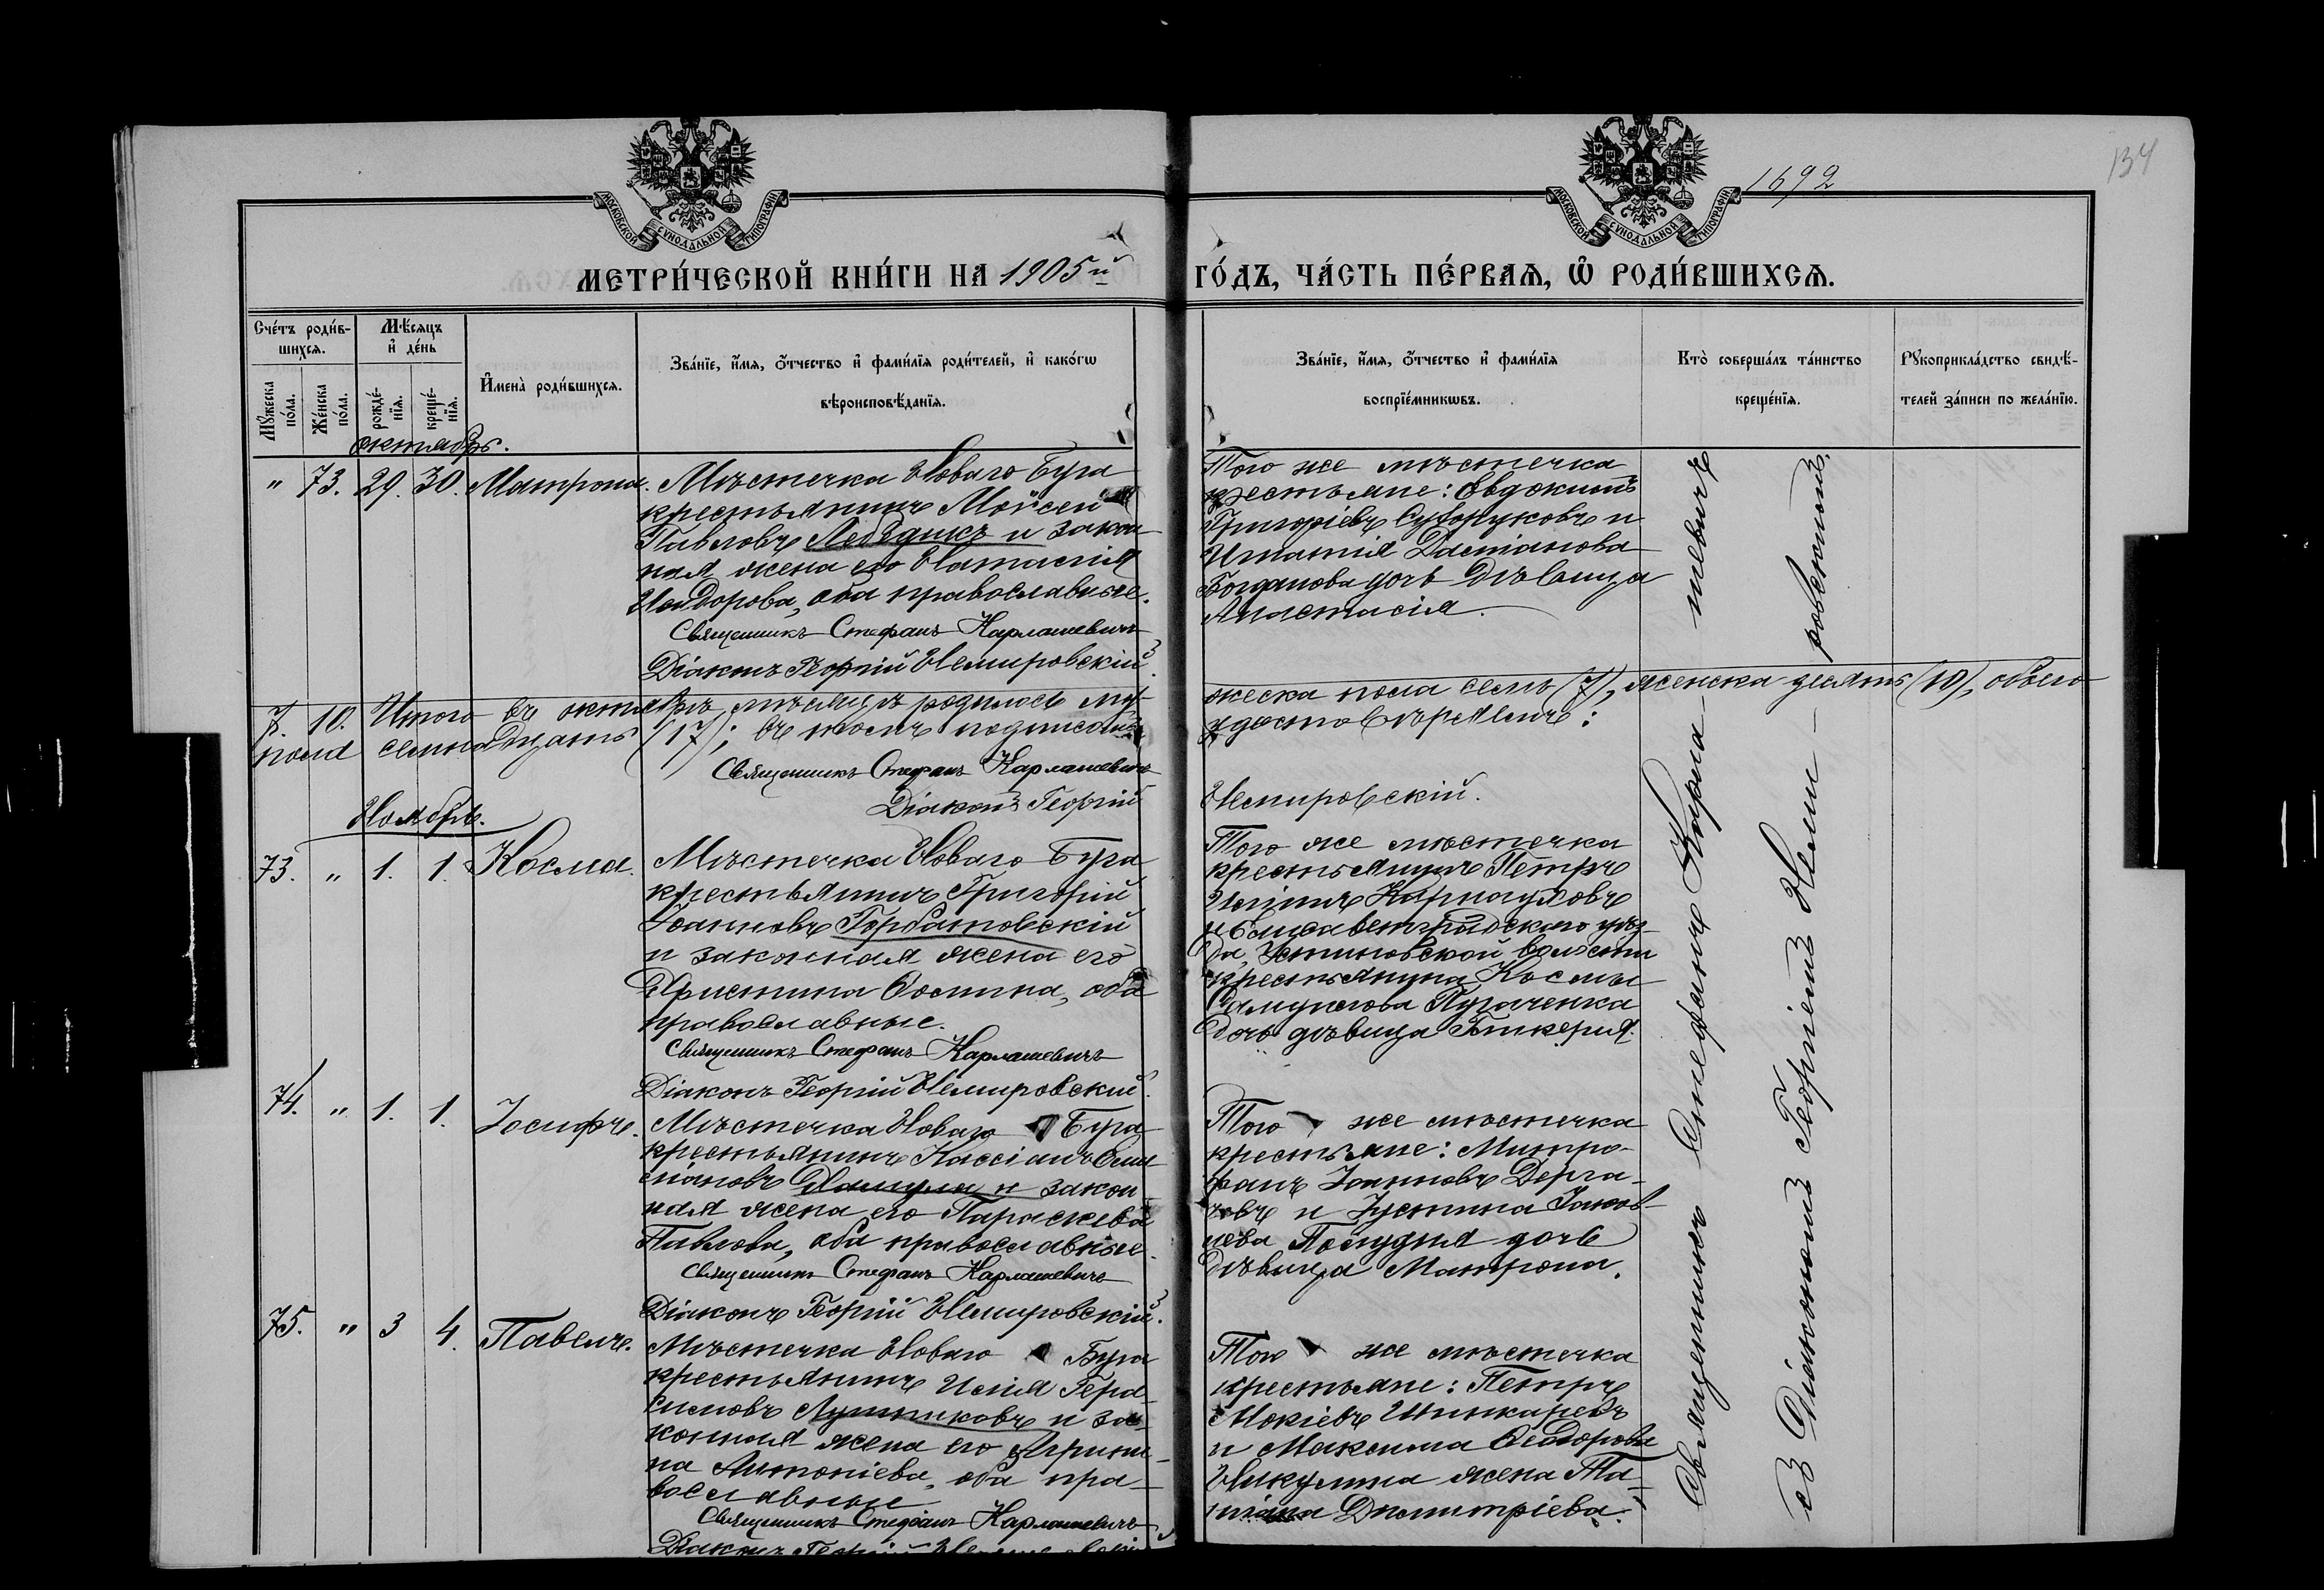 134
1692
МОСКОВСКОЙ СѴНОДАЛЬНОЙ ТИПОГРАФІИ
МОСКОВСКОЙ СѴНОДАЛЬНОЙ ТИПОГРАФІИ
МЕТРИ́ЧЕСКОЙ КНИ́ГИ НА 1905й ГО́ДЪ, ЧА́СТЬ ПЕ́РВАѦ, Ѡ РОДИ́ВШИХСѦ.
Счéтъ роди́вшихсѧ.
Мꙋ́жеска по́ла.
Же́нска по́ла.
Мѣ́сѧцъ и҆ де́нь
рожде́нїѧ.
креще́нїѧ.
И҆мена̀ роди́вшихсѧ.
Зва́нїе, и҆́мѧ, ѻ҆́тчество и҆ фами́лїѧ роди́телей, и҆ како́гѡ
вѣроисповѣ́данїѧ.
Зва́нїе, и҆́мѧ, ѻ҆́тчество и҆ фами́лїѧ
воспрїе́мникѡвъ.
Кто̀ соверша́лъ та́инство
креще́нїѧ.
Рꙋкоприкла́дство свидѣ́-
телей за́писи по жела́нїю.
октябрь.
" 73. 29. 30. Матрона.
Мѣстечка Новаго Буга
крестьянинъ Моѵсей
Павловъ Лебедикъ и закон-
ная жена его Наталія
Исидорова, оба православные.
Священникъ Стефанъ Карлашевичъ
Діаконъ Георгій Немировскій
Того же мѣстечка
крестьяне: Евдокимъ
Григоріевъ Сухоруковъ и
Игнатія Даміанова
Богданова дочь дѣвица
Анастасія.
7. 10. Итого въ октябрѣ мѣсяцѣ родилось му-
жеска пола семь (7), женска десять (10), обоего
пола семнадцать (17); въ томъ подписомъ
удостовѣряемъ:
Священникъ Стефанъ Карлашевичъ
Діаконъ Георгій Немировскій.
Ноябрь.
73. " 1. 1. Косма.
Мѣстечка Новаго Буга
крестьянинъ Григорій
Іоанновъ Горбатовскій
и законная жена его
Христина Фомина, оба
православные.
Священникъ Стефанъ Карлашевичъ
Діаконъ Георгій Немировскій.
Того же мѣстечка
крестьянинъ Петръ
и Елисаветградскаго уѣз-
да, Устиновской волости
крестьянина Космы
Самуилова Пугаченка
дочь дѣвица Гликерія.
74. " 1. 1. Іосифъ.
Мѣстечка Новаго Буга
крестьянинъ Кассіанъ Еми-
ліановъ и закон-
ная жена его Параскева
Павлова, оба православные.
Священникъ Стефанъ Карлашевичъ
Діаконъ Георгій Немировскій.
Того же мѣстечка
крестьяне: Митро-
фанъ Іоанновъ Дерга-
човъ и Іустина Іаков-
лева дочь
дѣвица Матрона.
75. " 3 4. Павелъ.
Мѣстечка Новаго Буга
крестьянинъ Исаія Гера-
симовъ и за-
конная жена его Агрипи-
на Антоніева, оба пра-
вославные
Священникъ Стефанъ Карлашевичъ
Діаконъ Георгій
Того же мѣстечка
крестьяне: Петръ
Мокіевъ Шинкаревъ
и Максима Ѳеодорова
Никулина жена Та-
тіана Димитріева.
Священникъ Стефанъ Карла-
шевичъ
съ Діакономъ Георгіемъ Неми-
ровскимъ.